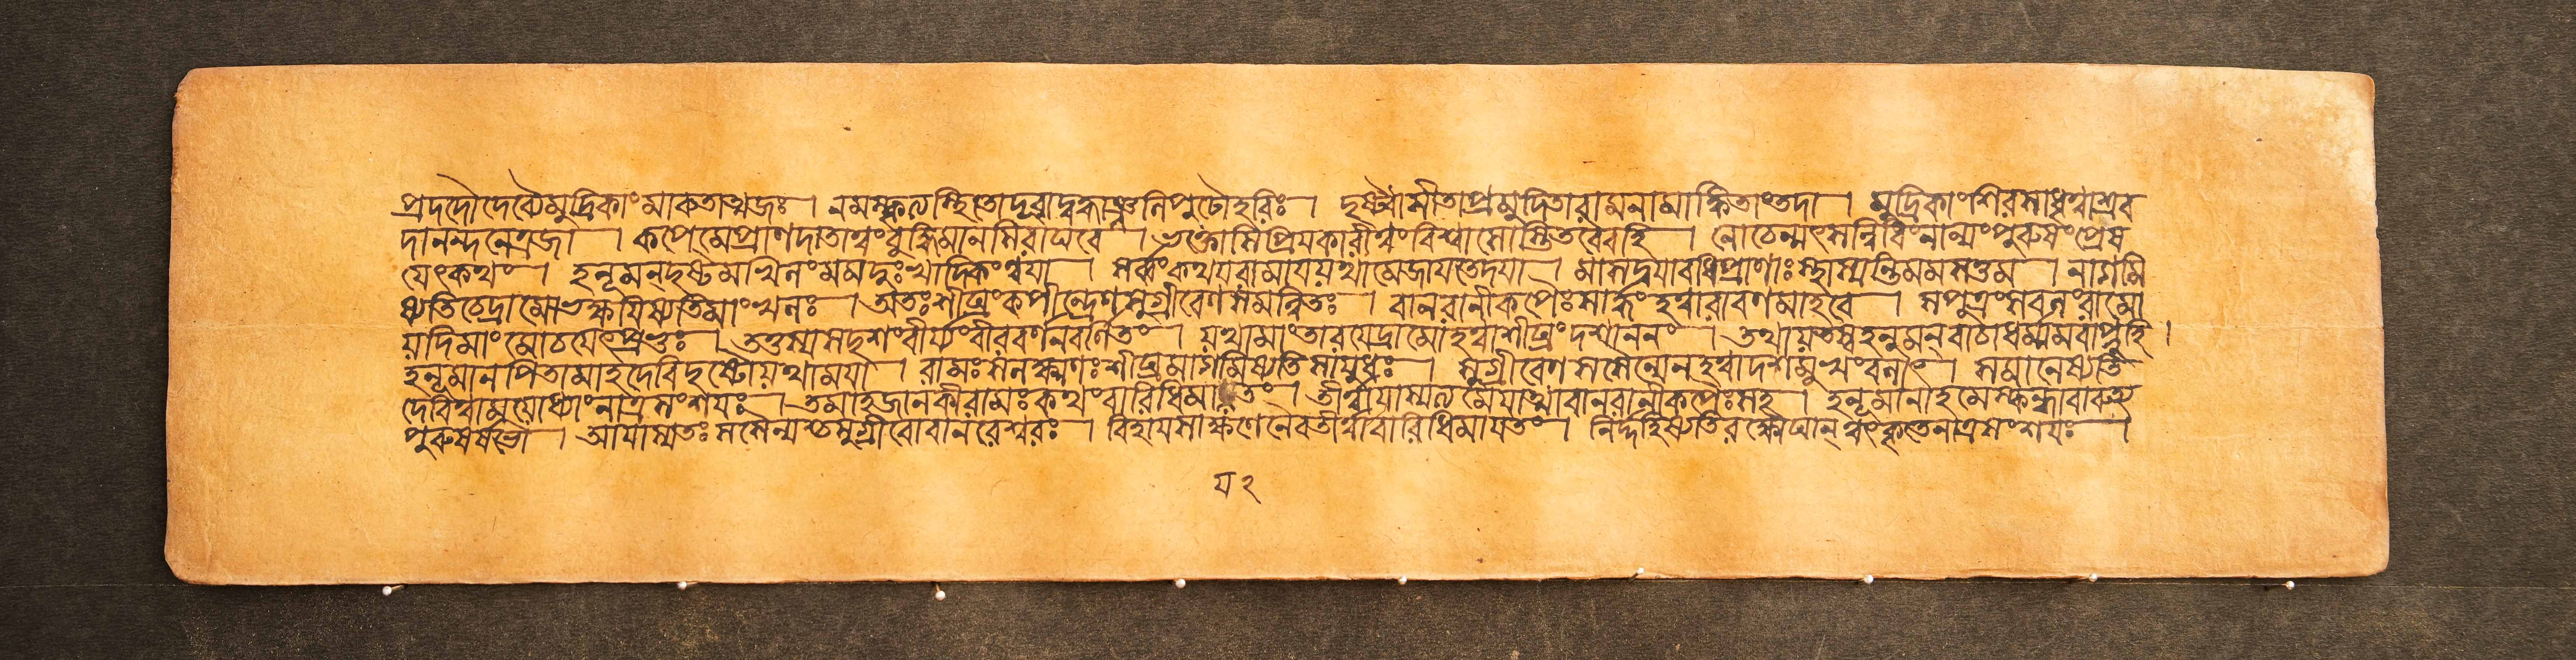 প্রদদৌদেব্যৈমুদ্রিকাংমারুতাত্মজঃ। নমস্কৃত্যস্থিতোদূরাদ্বদ্ধাঞ্জলিপুটোহরিঃ। দৃষ্ট্বাসীতাপ্রমুদিতারামনামাঙ্কিতাংতদা। মুদ্রিকাংশিরসাধৃত্বাস্রব
দানন্দনেত্রজা। কপেমেপ্রাণদাতাত্বংবুদ্ধিমানসিরাঘবে। ভক্তোসিপ্রিয়কারীত্বংবিশ্বাসোস্তিতবৈবহি। নোচেন্মৎসন্নিধিংনান্যংপুরুষংপ্রেষ
য়েৎকথং। হনূমন্দৃষ্টমখিলংমমদুঃখাদিকংত্বয়া। সর্ব্বংকথয়রামায়যথামেজায়তেদয়া। মাসদ্বয়াবধিপ্রাণাঃস্থাস্যন্তিমমসত্তম। নাগমি
ষ্যতিচেদ্রামোভক্ষয়িষ্যতিমাংখলঃ। অতঃশীঘ্রংকপীন্দ্রেণসুগ্রীবেণসমন্বিতঃ। বানরানীকপৈঃসার্দ্ধংহত্বারাবণমাহবে। সপুত্রংসবলংরামো
যদিমাংমোচয়েৎপ্রভুঃ। তত্তস্যসদৃশংবীর্য্যংবীরবর্ণনবর্ণিতং। যথামাংতারয়েদ্রামোহত্বাশীঘ্রংদশাননং। তথাযতস্বহনুমন্বাচাধর্ম্মমবাপ্নুহি।
হনূমানপিতামাহদেবিদৃষ্টোযথাময়া। রামঃসলক্ষ্মণঃশীঘ্রমাগমিষ্যতিসায়ুধঃ। সুগ্রীবেণসসৈন্যেনহত্বাদশমুখংবলাৎ। সমানেষ্যতি
দেবিত্বামযোধ্যাংনাত্রসংশয়ঃ। তমাহজানকীরামঃকথংবারিধিমাততং। তীর্ত্বায়াস্যত্যমেয়াত্মাবানরানীকপৈঃসহ। হনূমানাহমেস্কন্ধাবারুহ্য
পুরুষর্ষভৌ। আয়াস্যতঃসসৈন্যশ্চসুগ্রীবোবানরেশ্বরঃ। বিহায়সাক্ষণেনৈবতীর্ত্বাবারিধিমায়তং। নির্দ্দহিষ্যতিরক্ষৌঘান্ত্বৎকৃতেনাত্রসংশয়ঃ।